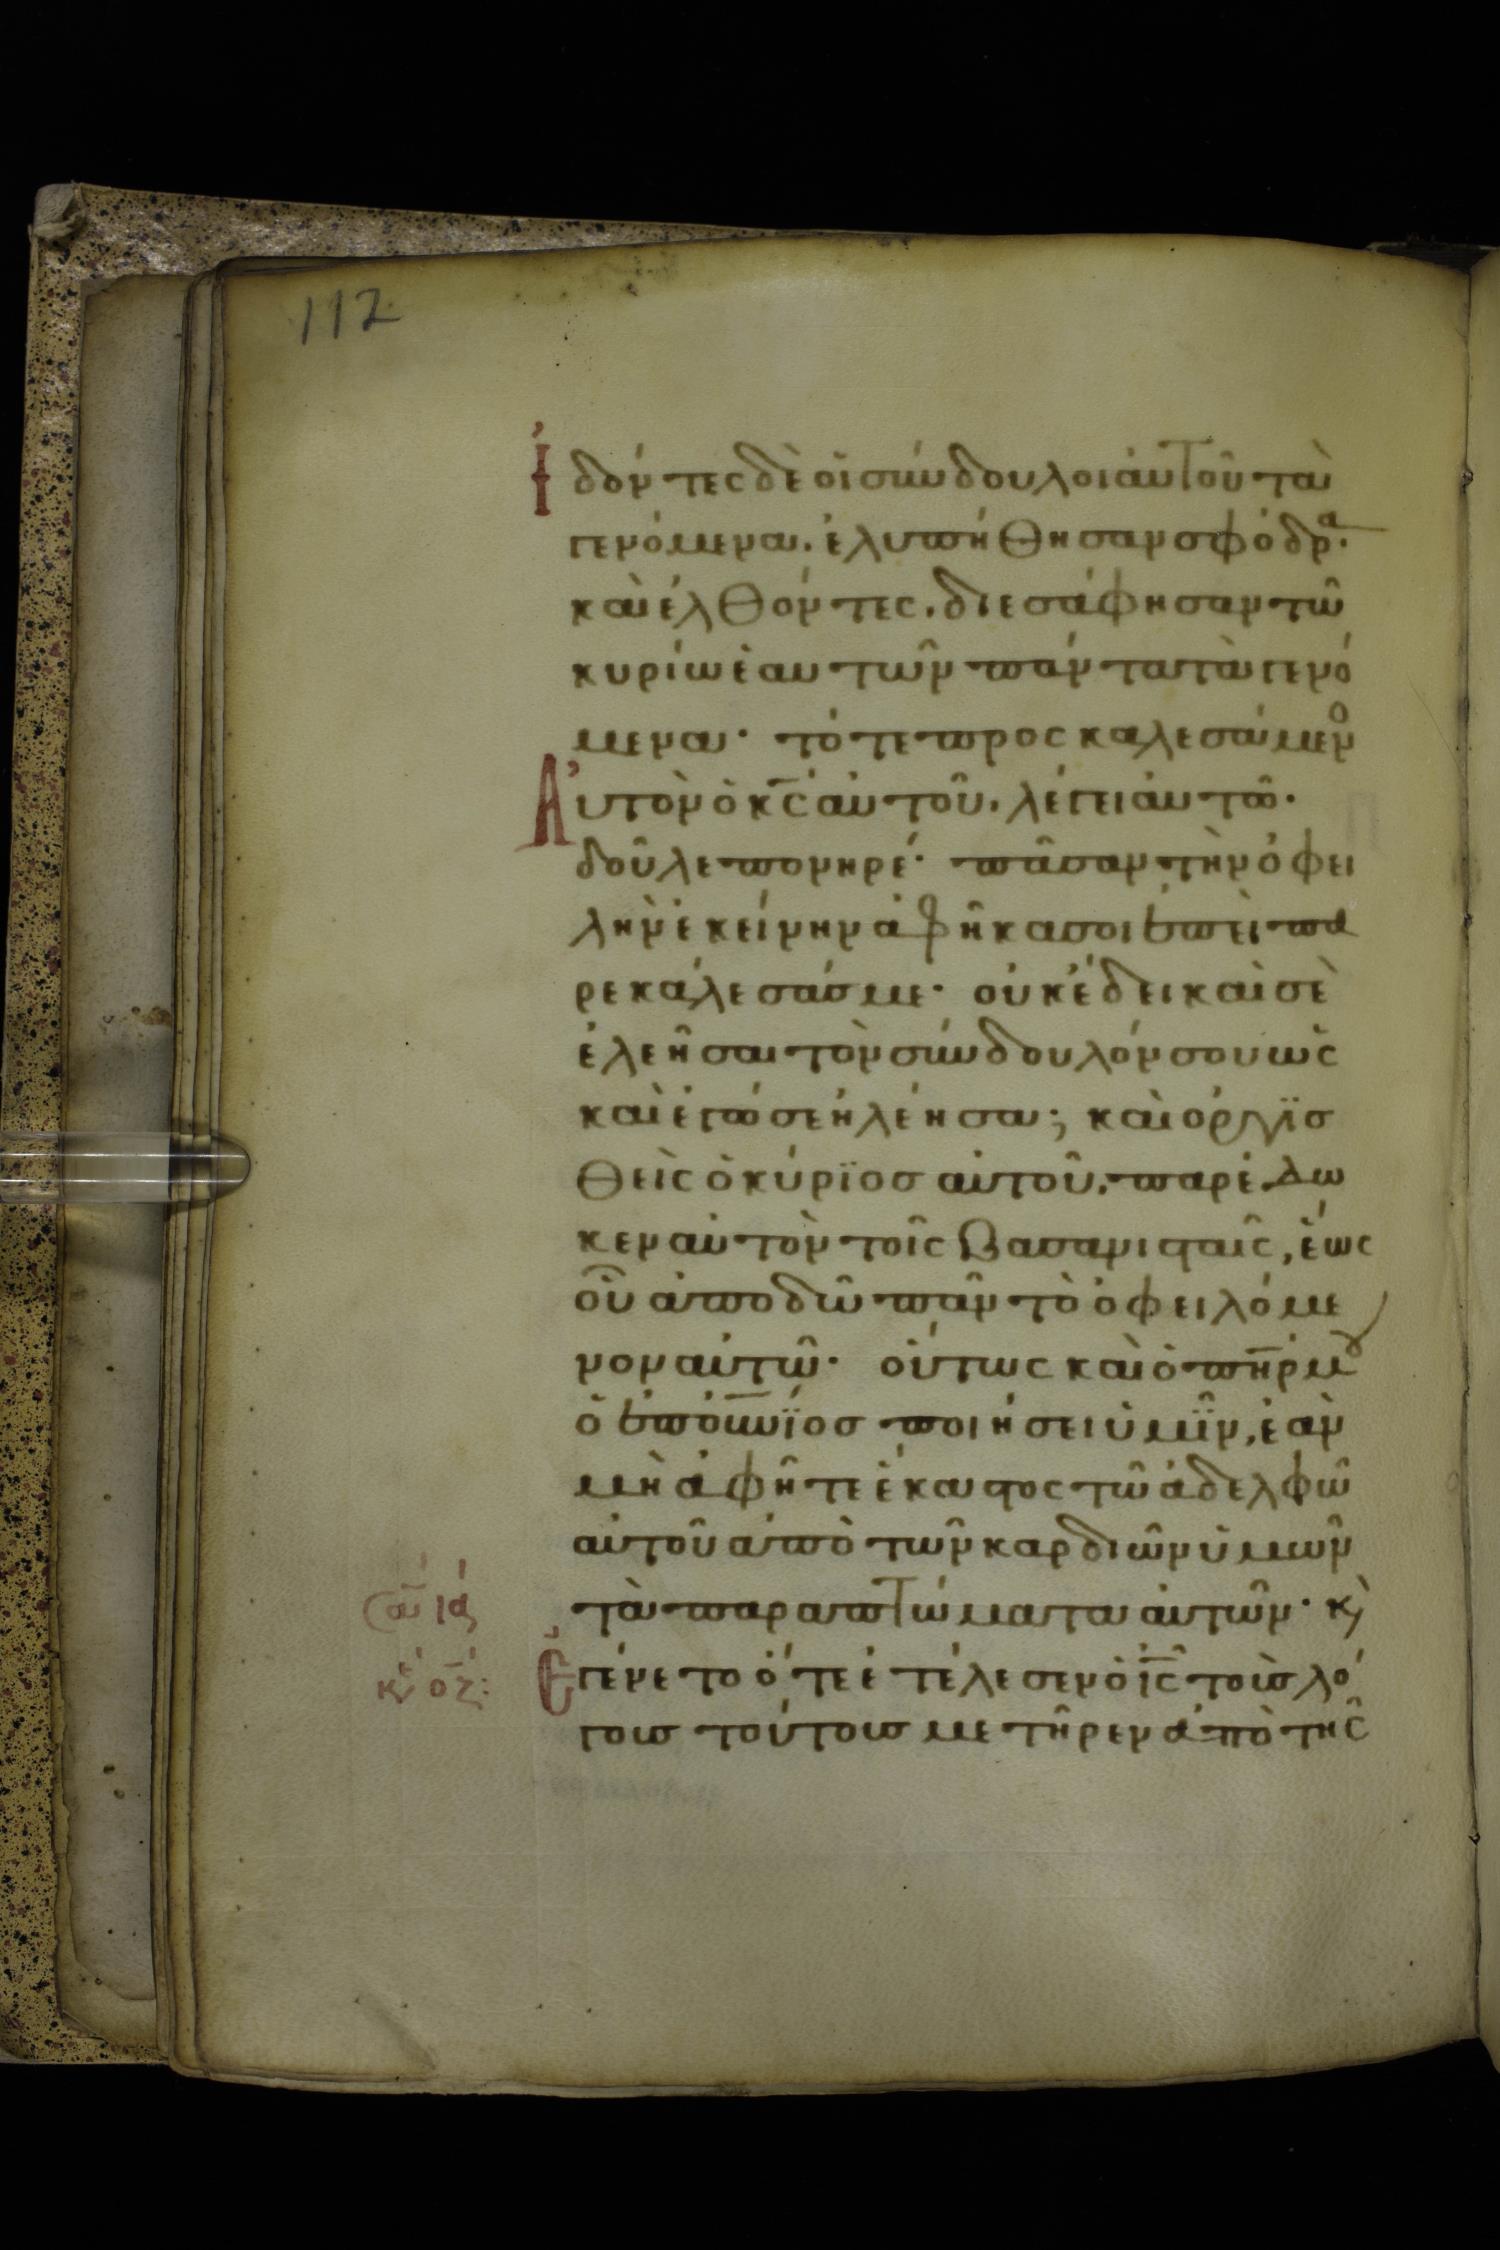 112
Ἰδόντες δὲ οἱ σύνδουλοι αὐτοῦ τὰ
γενόμενα. ἐλυπήθησαν σφόδρα·
καὶ ἐλθόντες. διεσάφησαν τῶ
κυρίω ἑαυτῶν πάντα τὰ γενό
μενα· τότε προσκαλεσάμενο
Αὐτὸν ὁ κ̅ς̅ αὐτοῦ. λέγει αὐτῶ·
δοῦλε πονηρέ· πᾶσαν τὴν ὀφει
λὴν ἐκείνην ἀφῆκα σοι ἐπεὶ πα
ρεκάλεσάσ με· οὐκ ἔδει καὶ σὲ
ἐλεῆσαι τὸν σύνδουλόν σου ὡς
καὶ ἐγώ σε ἠλέησα; καὶ ὀργϊσ
θεὶς ὁ κύρϊοσ αὐτοῦ. παρέδω
κεν αὐτὸν τοῖς βασανισταῖς, ἕως
οὗ ἀποδῶ πᾶν τὸ ὀφειλόμε
νον αὐτῶ· οὕτως καὶ ὁ π̅η̅ρ μου
ὁ ἐπο̅υ̅νϊοσ ποιήσει ὑμῖν, ἐὰν
μὴ ἀφῆτε ἕκαστος τῶ ἀδελφῶ
αὐτοῦ ἀπὸ τῶν καρδιῶν ὑμῶν
τὰ παραπτώματα αὐτῶν· κὶ
Ἐγένετο ὅτε ἐτέλεσεν ὁ ι̅ς̅ τοὺσ λό
γουσ τούτουσ μετῆρεν ἀπὸ τῆς